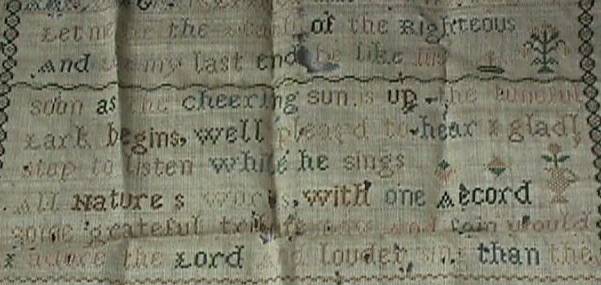 Let me the of the Righteous
And my last end be like his
soon as the cheering sun is up the tuneful
Lark begins, well pleas'd to hear I gladly
stop to listen while he sings
All Nature s works, with one Accord
some grateful and fain would
I the Lord and louder than